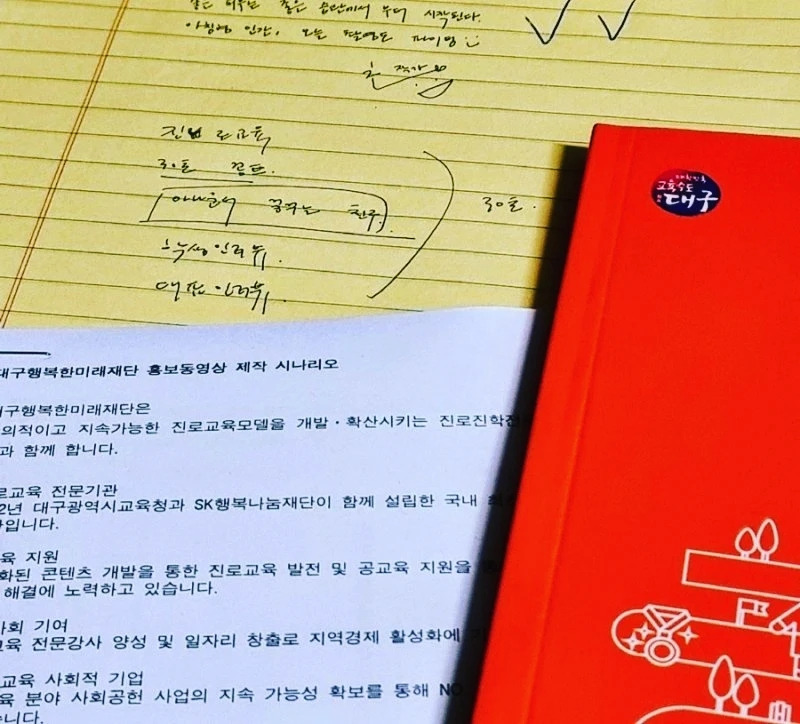 좋은 순간에서 부터 시작된다.
오늘 촬영도 파이팅
진로교육
꿈꾸는 친구
학생 인터뷰
인터뷰
대한민국
교육수도
대구
대구행복한미래재단 홍보동영상 제작 시나리오
대구행복한미래재단은
의적이고 지속가능한 진로교육모델을 개발·확산시키는 진로진학전
과 함께 합니다.
로교육 전문기관
2년 대구광역시교육청과 SK행복나눔재단이 함께 설립한 국내 최
입니다.
육 지원
화된 콘텐츠 개발을 통한 진로교육 발전 및 공교육 지원을
해결에 노력하고 있습니다.
사회 기여
교육 전문강사 양성 및 일자리 창출로 지역경제 활성화에
교육 사회적 기업
육 분야 사회공헌 사업의 지속 가능성 확보를 통해 NO
습니다.